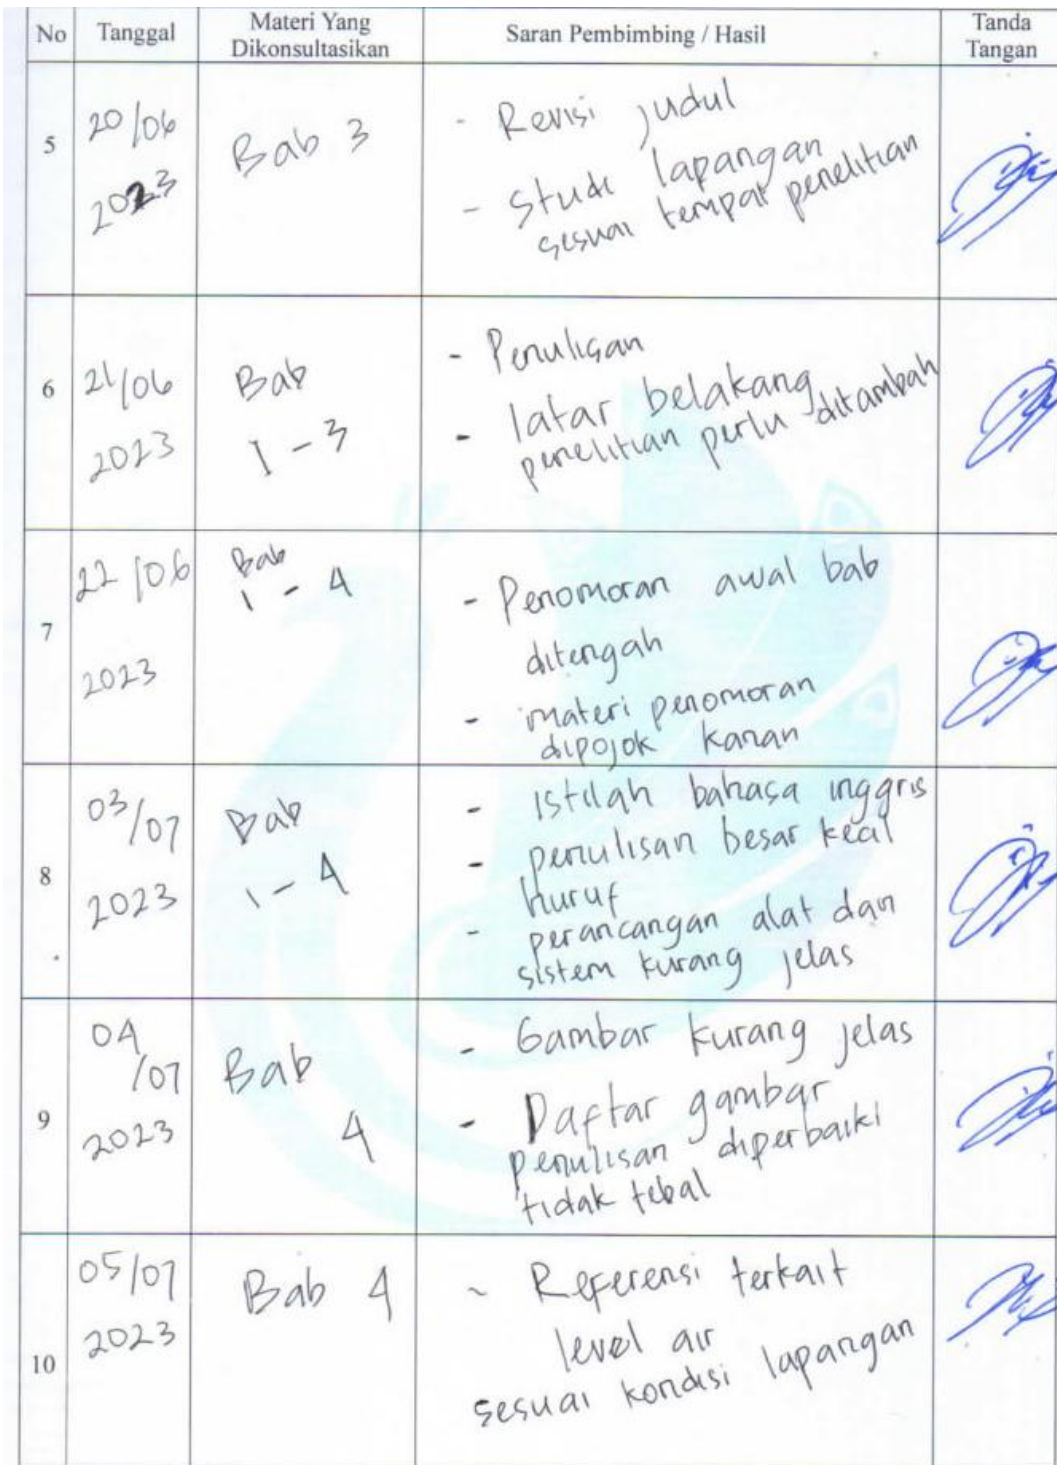 No Tanggal Materi Yang Dikonsultasikan Saran Pembimbing / Hasil Tanda Tangan
5
20/06
2023
Bab 3
- Revisi judul
- Studi lapangan
sesuai tempat penelitian
6
21/06
2023
Bab
1 - 3
- Penulisan
- latar belakang
penelitian perlu ditambah
7
22/06
2023
Bab
1 - 4
- Penomoran awal bab
ditengah
- materi penomoran
dipojok kanan
8
03/07
2023
Bab
1 - 4
- istilah bahasa inggris
- penulisan besar kecil
huruf
- perancangan alat dan
sistem kurang jelas
9
04
/07
2023
Bab
4
- Gambar kurang jelas
- Daftar gambar
penulisan diperbaiki
tidak tebal
10
05/07
2023
Bab 4
~ Referensi terkait
level air
sesuai kondisi lapangan